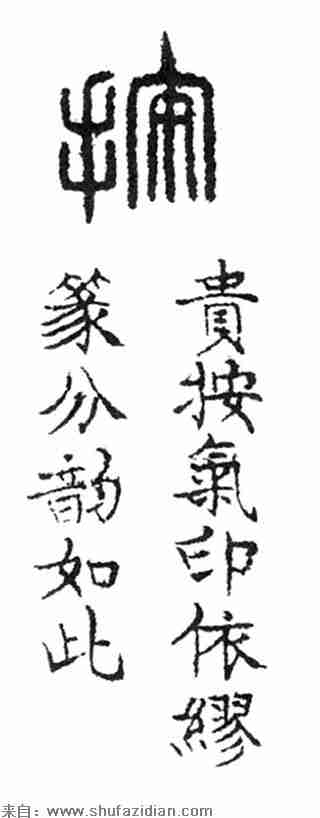 按
貴按氣印依繆
篆分韵如此
来自：www.shufazidian.com